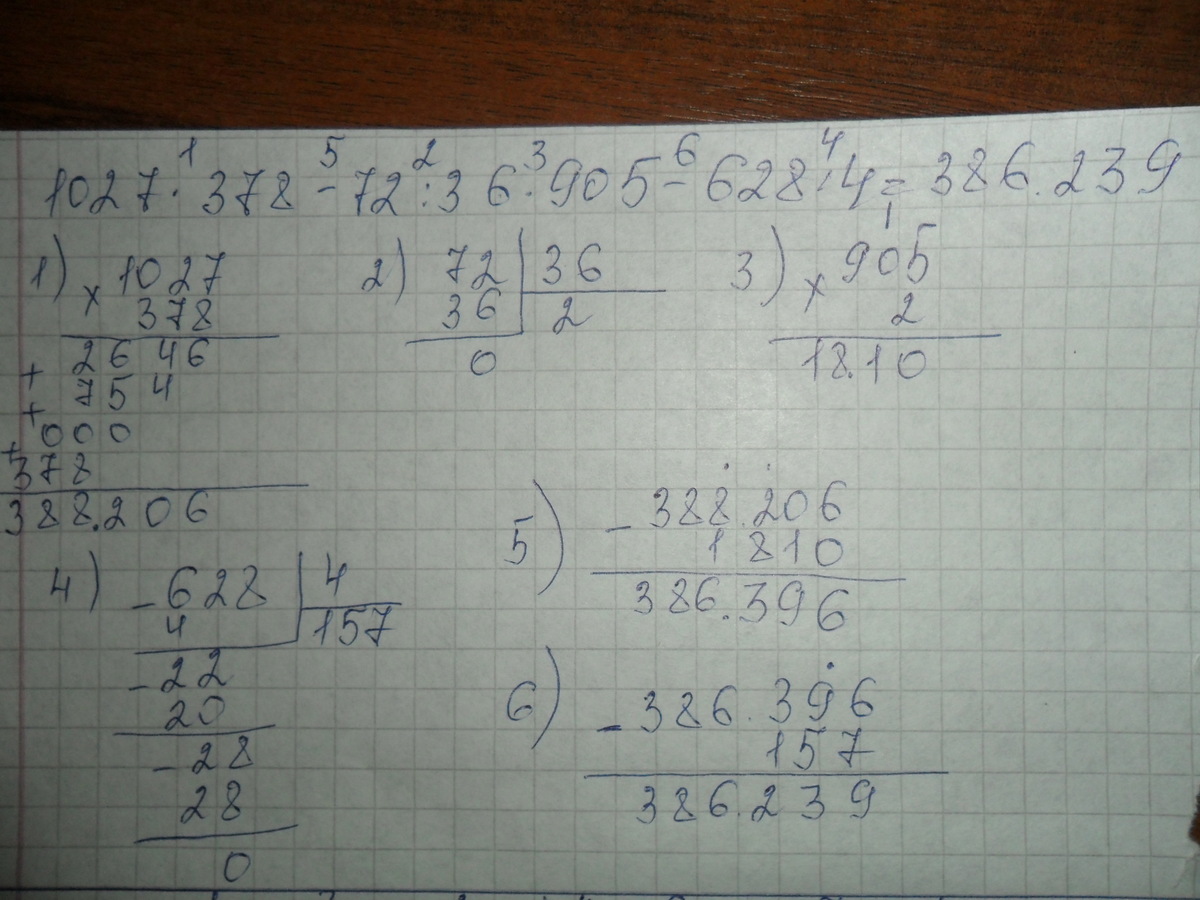 1 5 2 3 6 4
1027 · 378 - 72 : 36 · 905 - 628 : 4 = 386.239
1) × 1027
378
2646
+ 754
+ 000
+ 378
388.206
2) 72 | 36
36 2
0
1
3) × 905
2
18.10
4) - 628 | 4
4 157
- 22
20
- 28
28
0
5) - 388.206
1810
386.396
6) - 386.396
157
386.239